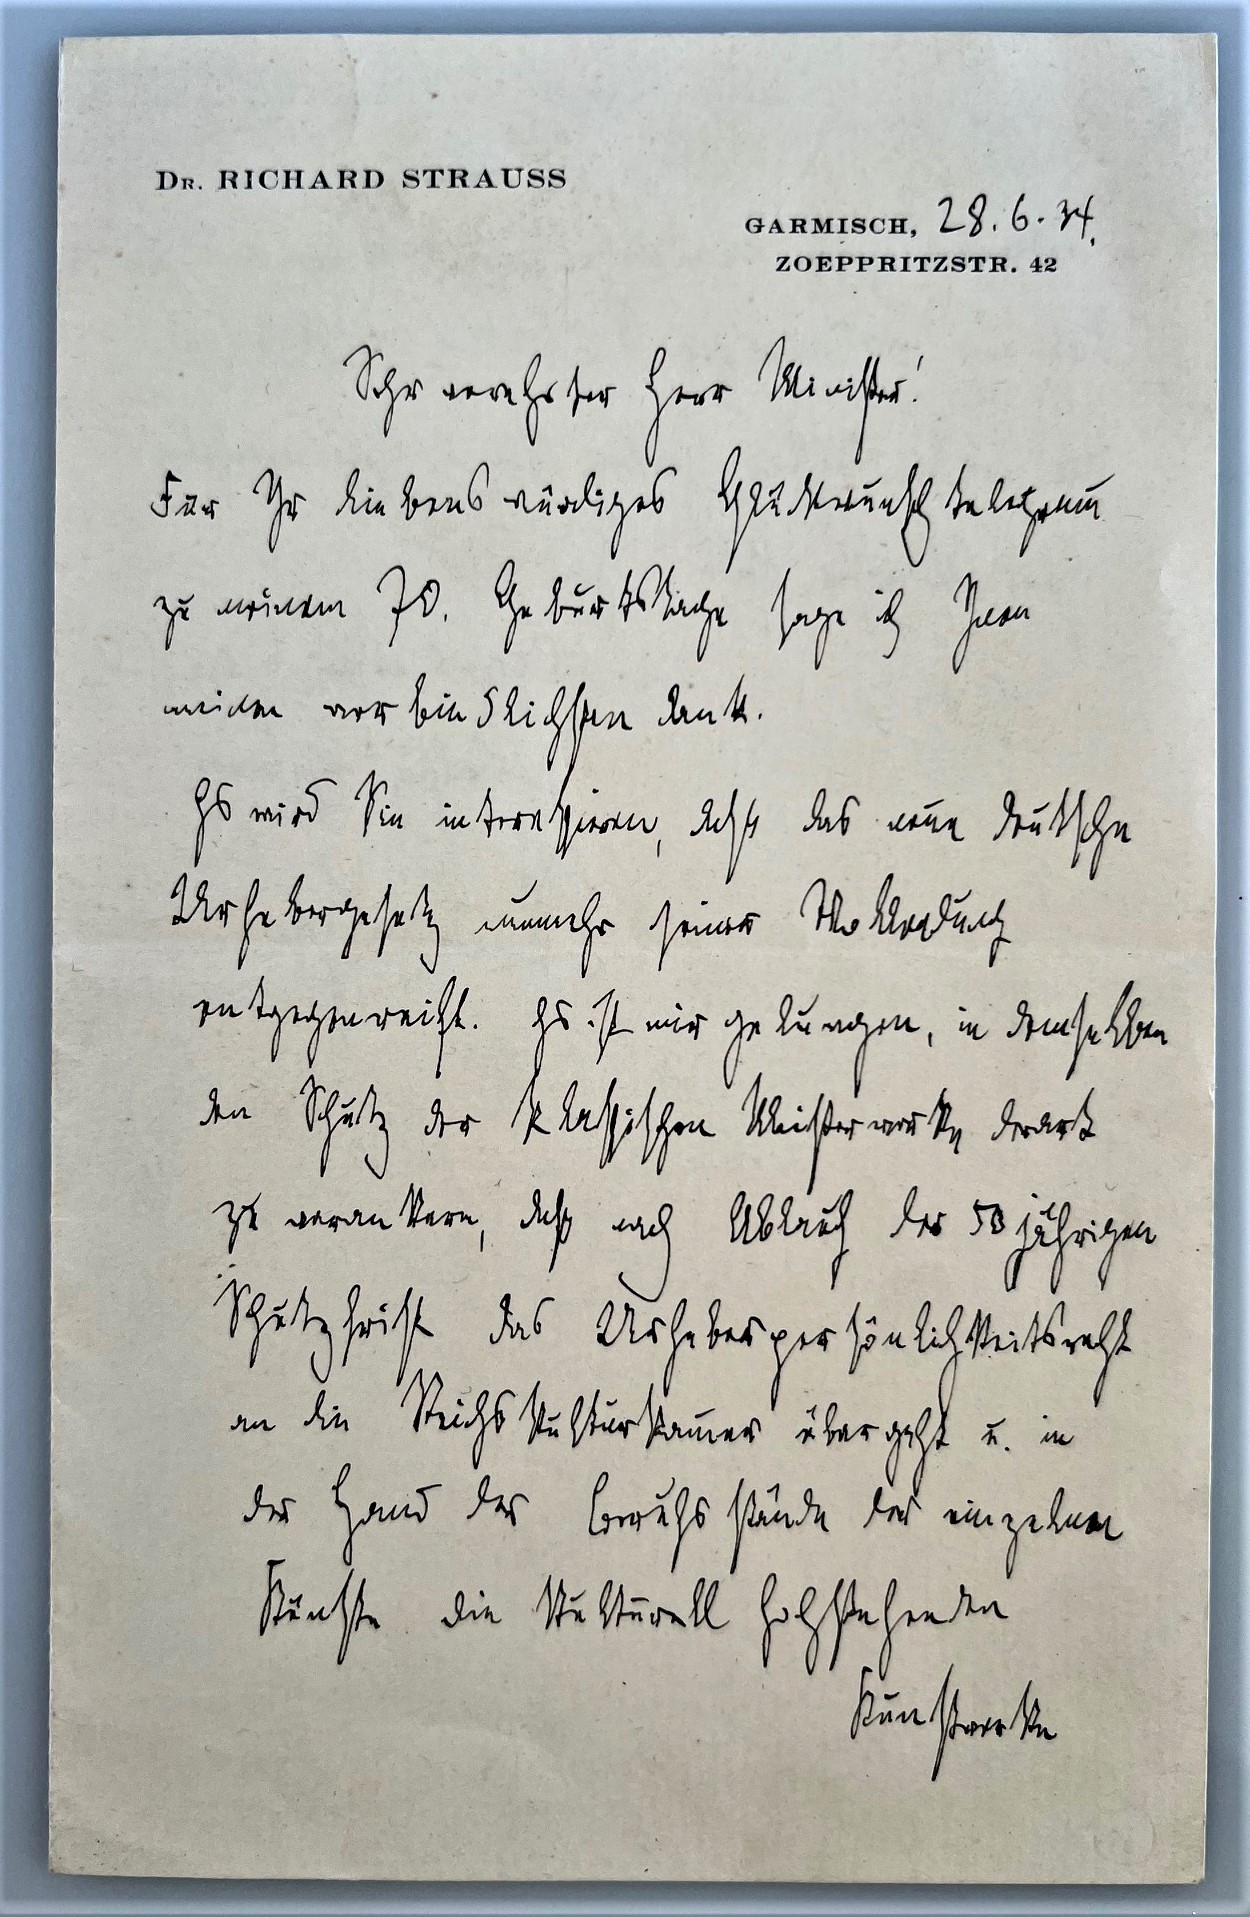 Dr. RICHARD STRAUSS
GARMISCH, 28.6.34.
ZOEPPRITZSTR. 42
Sehr verehrter Herr Minister!
Für Ihr liebenswürdiges Glückwunschtelegram̅
zu meinem 70. Geburtstage sage ich Ihnen
meinen verbindlichsten Dank.
Es wird Sie interessieren, dass das neue deutsche
Urhebergesetz nunmehr seiner Vollendung
entgegenreift. Es ist mir gelungen, in demselben
den Schutz der klassischen Meisterwerke derart
zu verankern, daß nach Ablauf der 50jährigen
Schutzfrist das Urheberpersönlichkeitsrecht
an die Reichskulturkam̅er übergeht u. in
der Hand der Berufsstände der einzelnen
Künste die kulturell hochstehenden
Kunstwerke